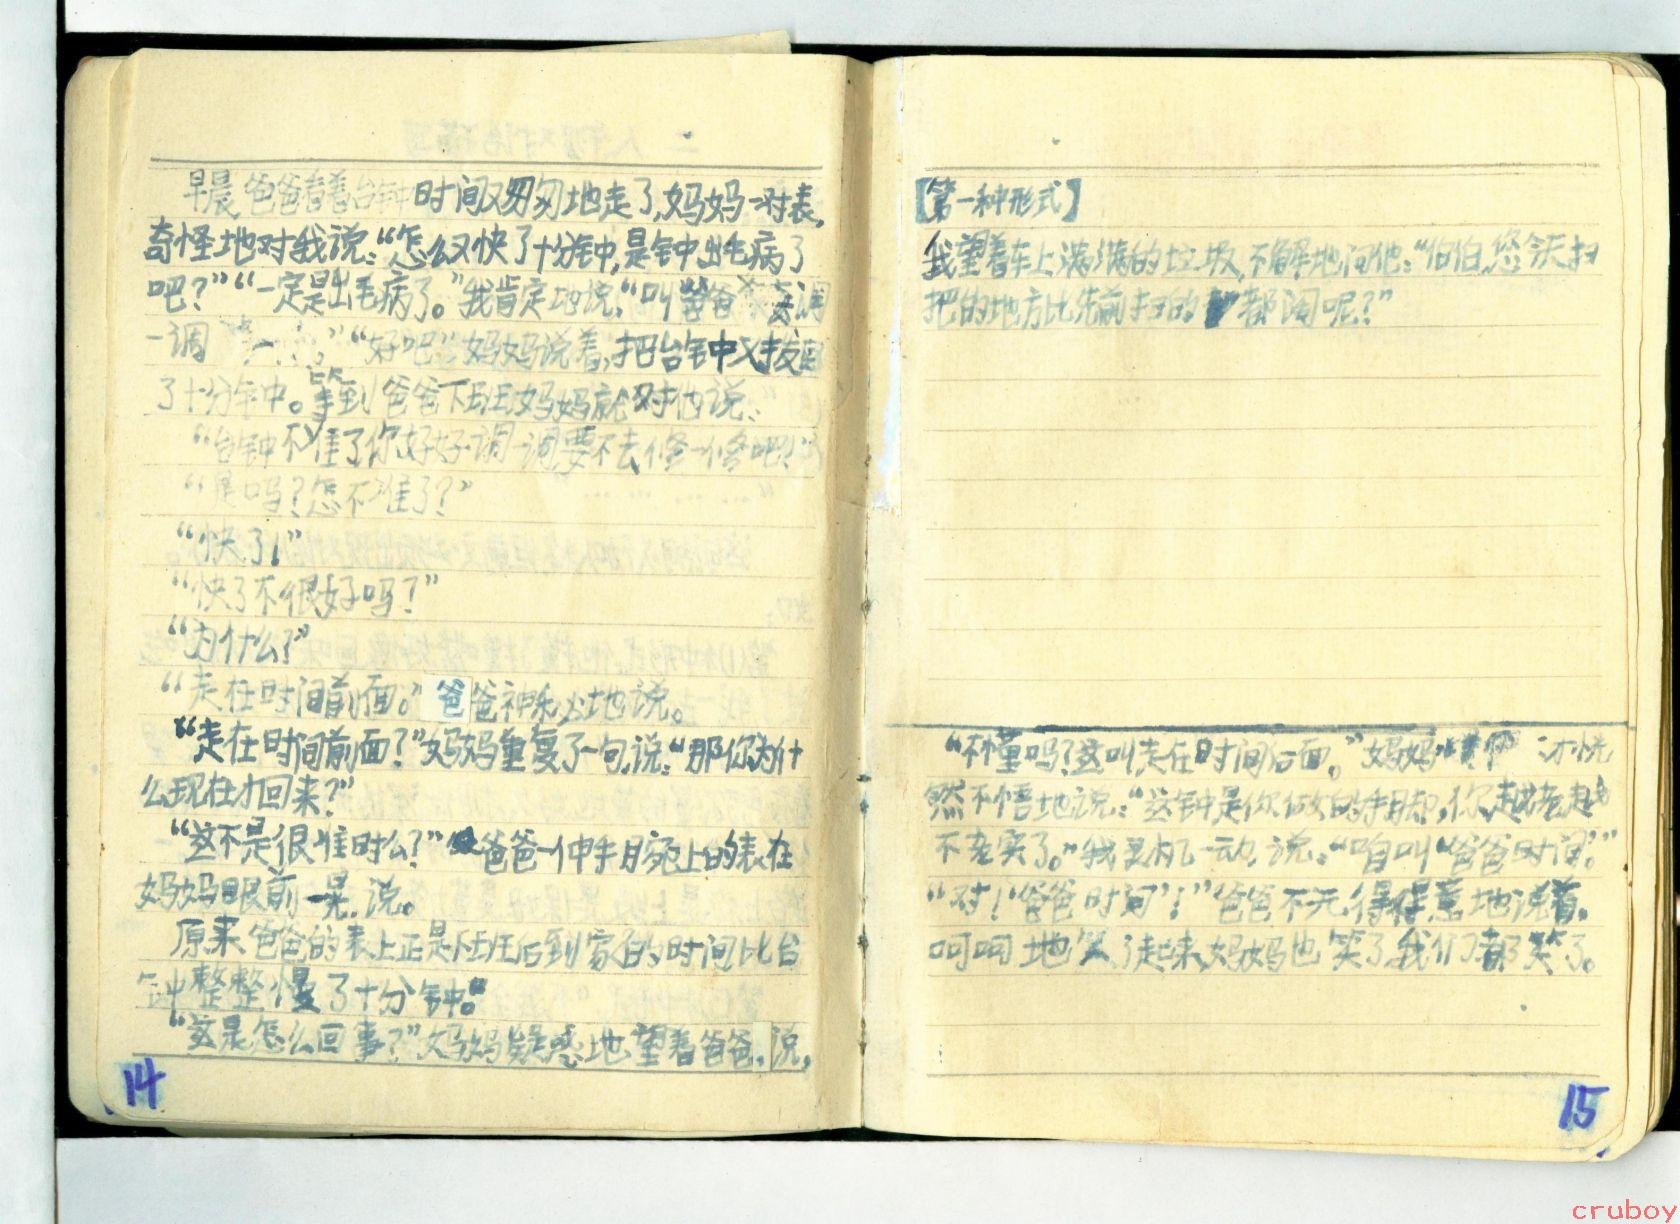 早晨,爸爸看着台钟时间又匆匆地走了,妈妈一对表,
奇怪地对我说:“怎么又快了十分钟,是钟出毛病了
吧?”“一定是出毛病了。”我肯定地说:“叫爸爸 去调
一调 ”“好吧”妈妈说着,把台钟又拨回
了十分钟。等到爸爸下班妈妈就对他说:
“台钟不准了你好好调一调要不去修一修吧!
“是吗?怎不准了?”
“快了!”
“快了不很好吗?”
“为什么?”
“走在时间前面。”爸爸神秘地说。
“走在时间前面?”妈妈重复了一句,说:“那你为什
么现在才回来?”
“这不是很准时么?”爸爸一伸手腕上的表在
妈妈眼前一晃,说。
原来爸爸的表上正是下班后到家的时间比台
钟整整慢了十分钟。”
“这是怎么回事?”妈妈疑惑地望着爸爸,说,
14
【第一种形式】
我望着车上满满的垃圾,不解地问他:“伯伯,您今天扫
把的地方比先前扫的 都阔呢?”
“不懂吗?这叫走在时间后面。”妈妈 才恍
然不悟地说:“这钟是你做的手脚,你越老越
不老实了。”我灵机一动,说:“咱叫“爸爸时间”。”
“对!‘爸爸时间’!”爸爸不无得意地说着,
呵呵地笑了起来,妈妈也笑了,我们都笑了。
15
cruboy